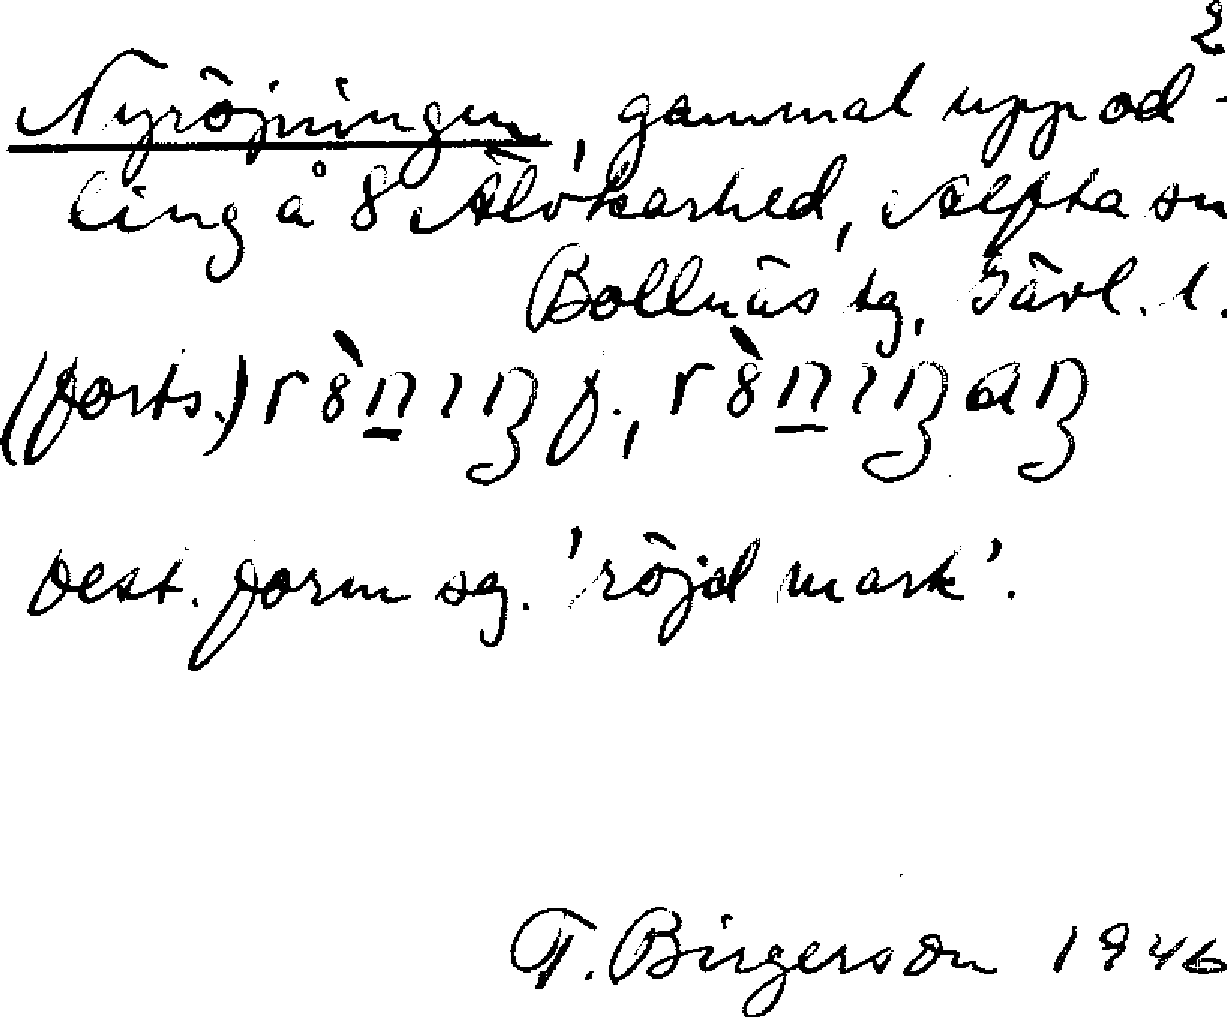 2
Nyröjningen, gammal uppod-
ling å 8 Älvkarhed, Alfta sn
Bollnäs tg, Gävl. l.
(forts.) f.,
best. form sg. 'röjd mark'.
T. Birgerson 1946